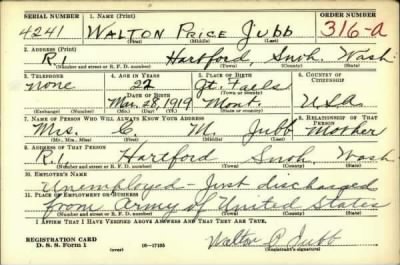 SERIAL NUMBER 1. NAME (Print) ORDER NUMBER
4241 WALTON PRICE JUBB 316-a
(First) (Middle) (Last)
2. ADDRESS (Print)
R.1 Hartford, Snoh. Wash.
(Number and street or R. F. D. number) (Town) (County) (State)
3. TELEPHONE 4. AGE IN YEARS 5. PLACE OF BIRTH 6. COUNTRY OF CITIZENSHIP
none 22 Gt. Falls
DATE OF BIRTH (Town or county)
Mar. 28, 1919 Mont. USA
(Exchange) (Number) (Mo.) (Day) (Yr.) (State or country)
7. NAME OF PERSON WHO WILL ALWAYS KNOW YOUR ADDRESS 8. RELATIONSHIP OF THAT PERSON
Mrs. C. M. Jubb Mother
(Mr., Mrs., Miss) (First) (Middle) (Last)
9. ADDRESS OF THAT PERSON
R.1. Hartford Snoh. Wash.
(Number and street or R. F. D. number) (Town) (County) (State)
10. EMPLOYER'S NAME
Unemployed - Just discharged
11. PLACE OF EMPLOYMENT OR BUSINESS
from Army of United States
(Number and street or R. F. D. number) (Town) (County) (State)
I AFFIRM THAT I HAVE VERIFIED ABOVE ANSWERS AND THAT THEY ARE TRUE.
REGISTRATION CARD
D. S. S. Form 1 (over) 16-17105 Walton P. Jubb
(Registrant's signature)